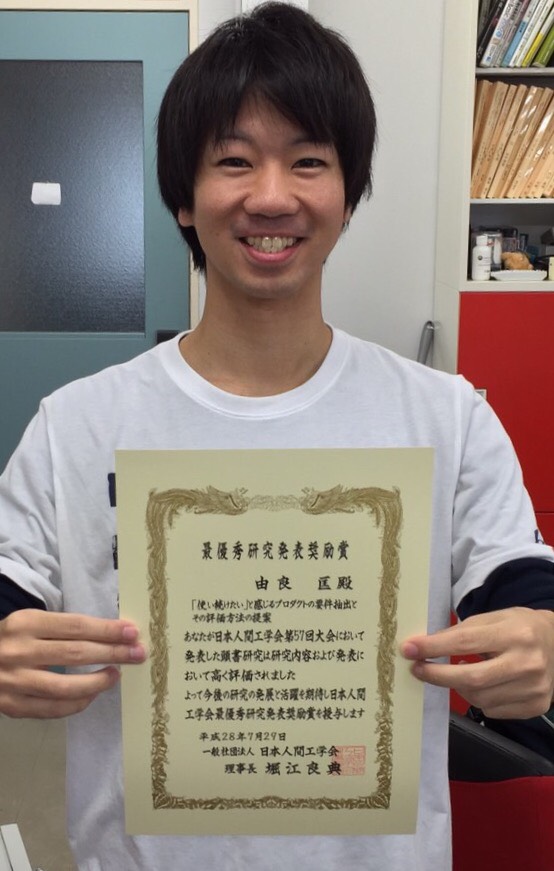 最優秀研究発表奨励賞
由良 匡殿
「使い続けたい」と感じるプロダクトの要件抽出と
その評価方法の提案
あなたが日本人間工学会第57回大会において
発表した頭書研究は研究内容および発表に
おいて高く評価されました
よって今後の研究の発展と活躍を期待し日本人間
工学会最優秀研究発表奨励賞を授与します
平成28年7月29日
一般社団法人 日本人間工学会
理事長 堀江良典